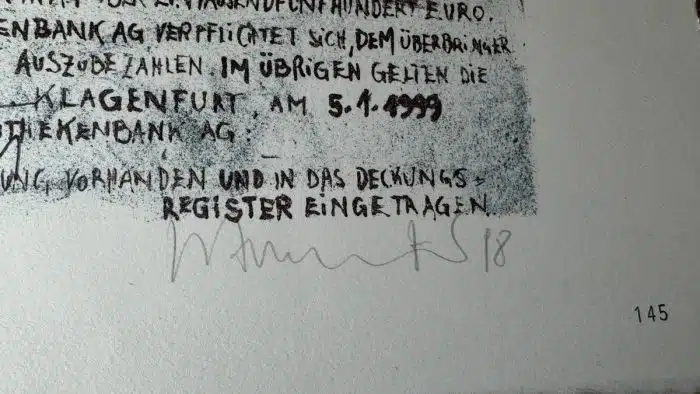 ÜBER 21.TAUSENDFÜNFHUNDERT EURO.
ENBANK AG VERPFLICHTET SICH, DEM ÜBERBRINGER
AUSZUBEZAHLEN. IM ÜBRIGEN GELTEN DIE
KLAGENFURT, AM 5.1.1999
OTHEKENBANK AG:
UNG VORHANDEN UND IN DAS DECKUNGS=
REGISTER EINGETRAGEN.
18
145